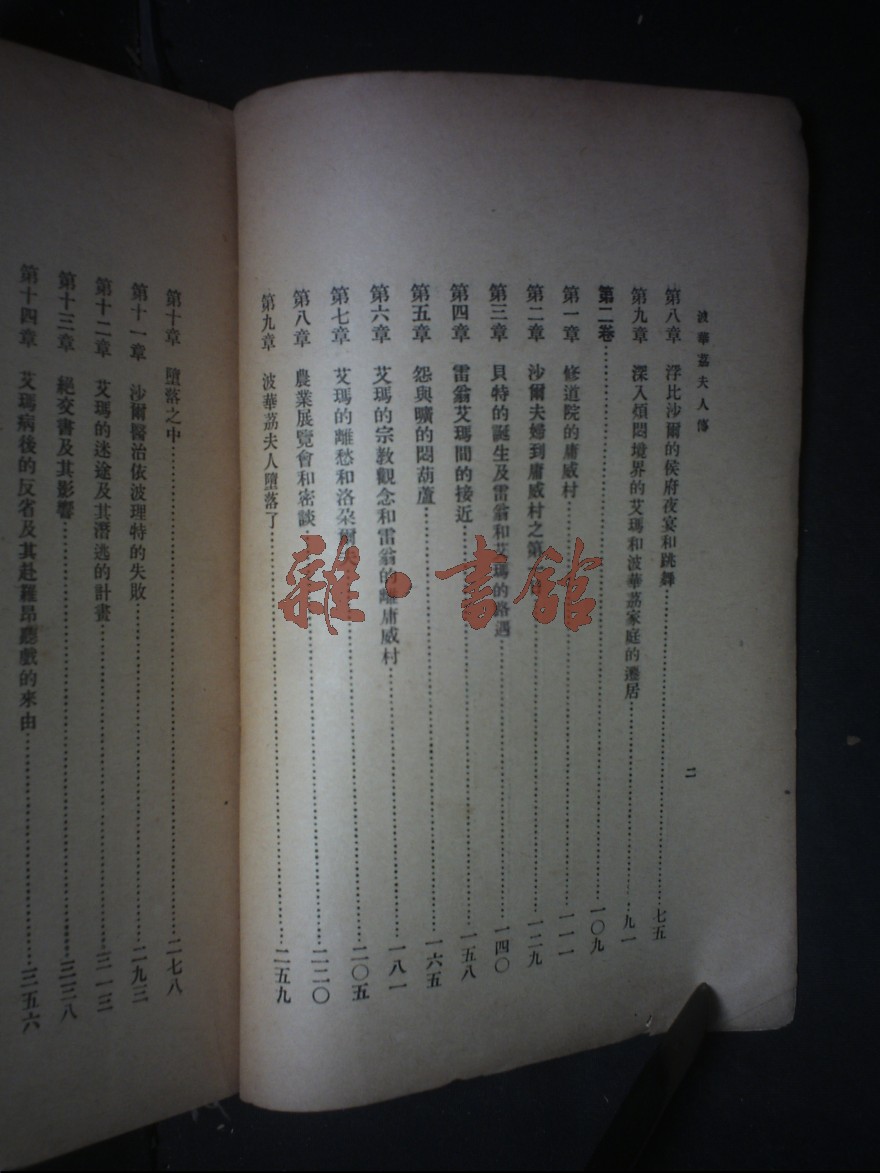 波華荔夫人傳
二
第八章 浮比沙爾的侯府夜宴和跳舞……七五
第九章 深入煩悶境界的艾瑪和波華荔家庭的遷居……九一
第二卷……一〇九
第一章 修道院的庸威村……一一一
第二章 沙爾夫婦到庸威村之第一日……一二九
第三章 貝特的誕生及雷翁和艾瑪的路遇……一四〇
第四章 雷翁艾瑪間的接近……一五八
第五章 怨與曠的悶葫蘆……一六五
第六章 艾瑪的宗教觀念和雷翁的離庸威村……一八一
第七章 艾瑪的離愁和洛朵爾……二〇五
第八章 農業展覽會和密談……二二〇
第九章 波華荔夫人墮落了……二五九
第十章 墮落之中……二七八
第十一章 沙爾醫治依波理特的失敗……二九三
第十二章 艾瑪的迷途及其潛逃的計畫……三一三
第十三章 絕交書及其影響……三三八
第十四章 艾瑪病後的反省及其赴羅昂聽戲的來由……三五六
雜·書館